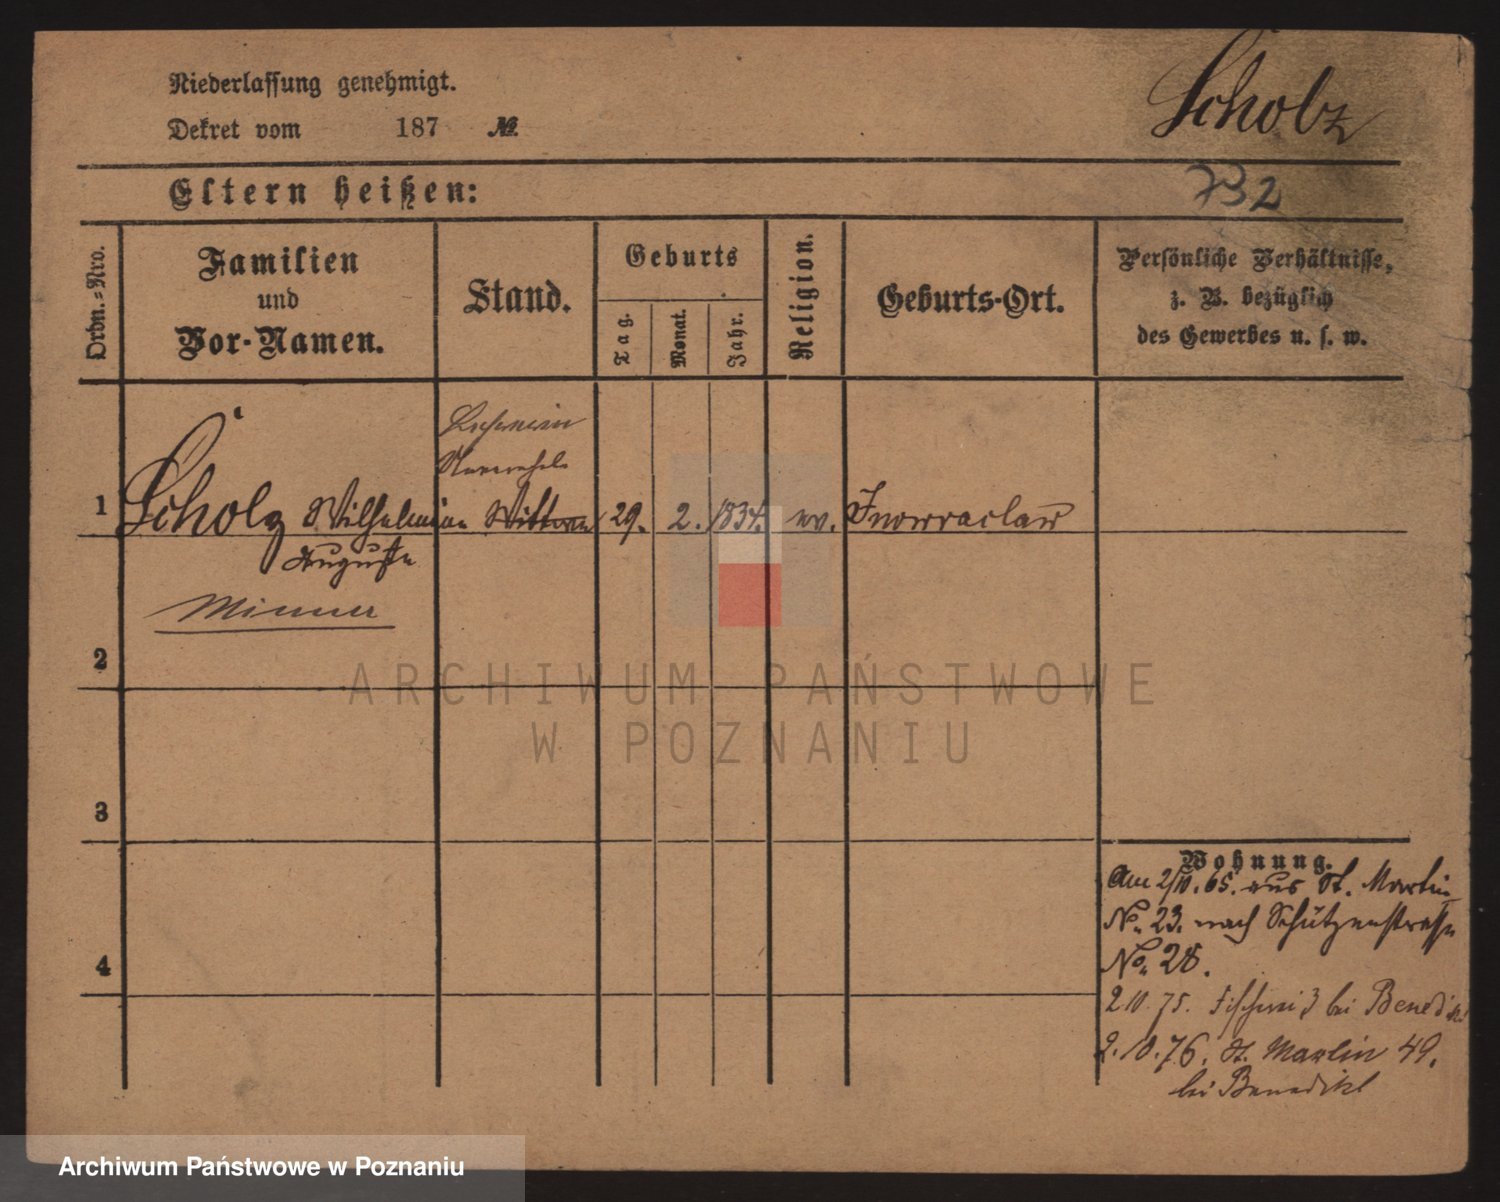 Niederlassung genehmigt.
Dekret vom 187 №
Scholz
Eltern heißen:
732
Ordn.-Nro.
Familien
und
Vor-Namen.
Stand.
Geburts
Tag.
Monat.
Jahr.
Religion.
Geburts-Ort.
Persönliche Verhältnisse,
z. B. bezüglich
des Gewerbes u. s. w.
1
Scholz Wilhelmine 29. 2. 1834. ev. Inowraclaw
Auguste
Minna
2
3
4
Wohnung.
Am 2/10. 65. aus St. Martin
No. 23. nach Schützenstrasse
No. 28.
2 10. 75. Fischerei 3 bei Benedikt
2. 10. 76. St. Martin 49.
bei Benedikt
ARCHIWUM PAŃSTWOWE
W POZNANIU
Archiwum Państwowe w Poznaniu